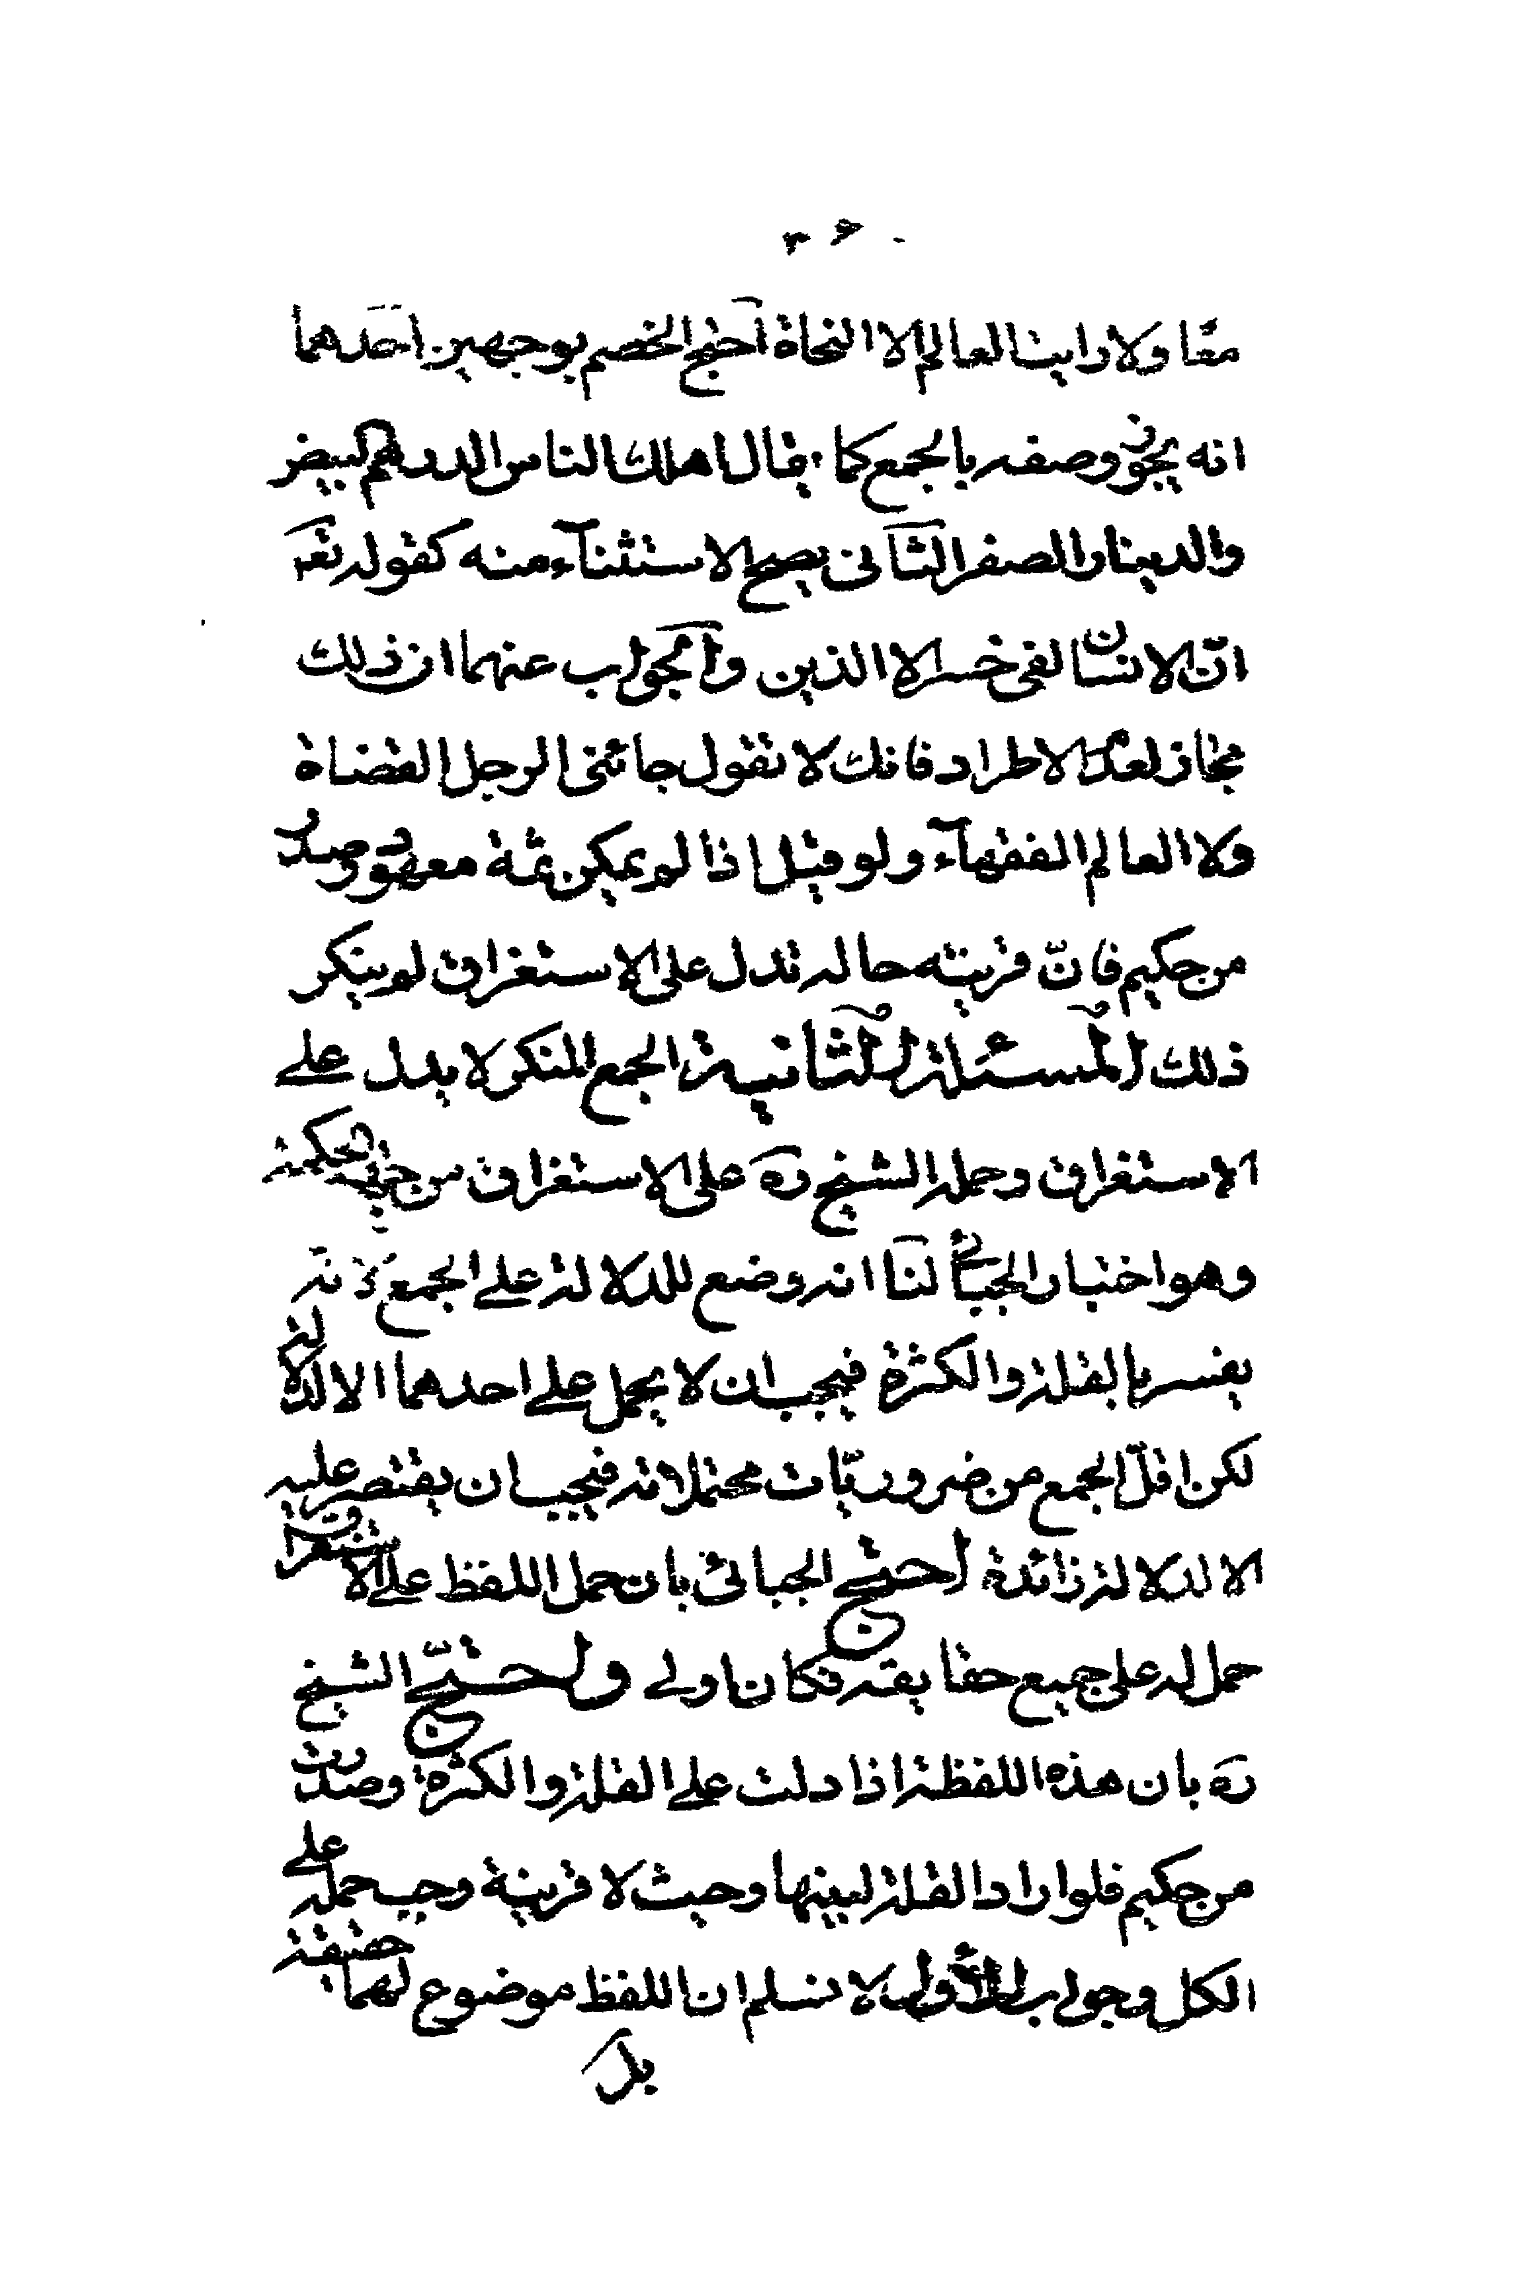 معًا ولا راينا العالم الا النحاة احتج الخصم بوجهين احدهما
انه يجوز وصفه بالجمع كما يقال اهلك الناس الدرهم البيض
والدينار الصفر الثانى يصح الاستثناء منه كقوله تعـ
انّ الانسان لفى خسر الا الذين والجواب عنهما ان ذلك
مجاز لعدم الاطراد فانك لا تقول جائنى الرجل القضاة
ولا العالم الفقهاء ولو قيل اذا لم يكن ثمة معهود وصدر
من حكيم فانّ قرينه حاله تدل على الاستغراق لم ينكر
ذلك المسئلة الثانية الجمع المنكر لا يدل على
الاستغراق وحمله الشيخ ره على الاستغراق من جهة الحكمة
وهو اختيار الجبائى لنا انه وضع للدلالة على الجمع لانه
يفسر بالقلة والكثرة فيجب ان لا يحمل على احدهما الا لدلالة
لكن اقلّ الجمع من ضروريّات محتملاته فيجب ان يقتصر عليه
الا لدلالة زائدة احتج الجبائى بان حمل اللفظ على الاستغراق
حمل له على جميع حقايقه فكان اولى واحتجّ الشيخ
ره بان هذه اللفظة اذا دلت على القلة والكثرة وصدرت
من حكيم فلو اراد القلة لبينها وحيث لا قرينة وجب حمله على
الكل وجواب الأول لا نسلم ان اللفظ موضوع لهما حقيقة
بل